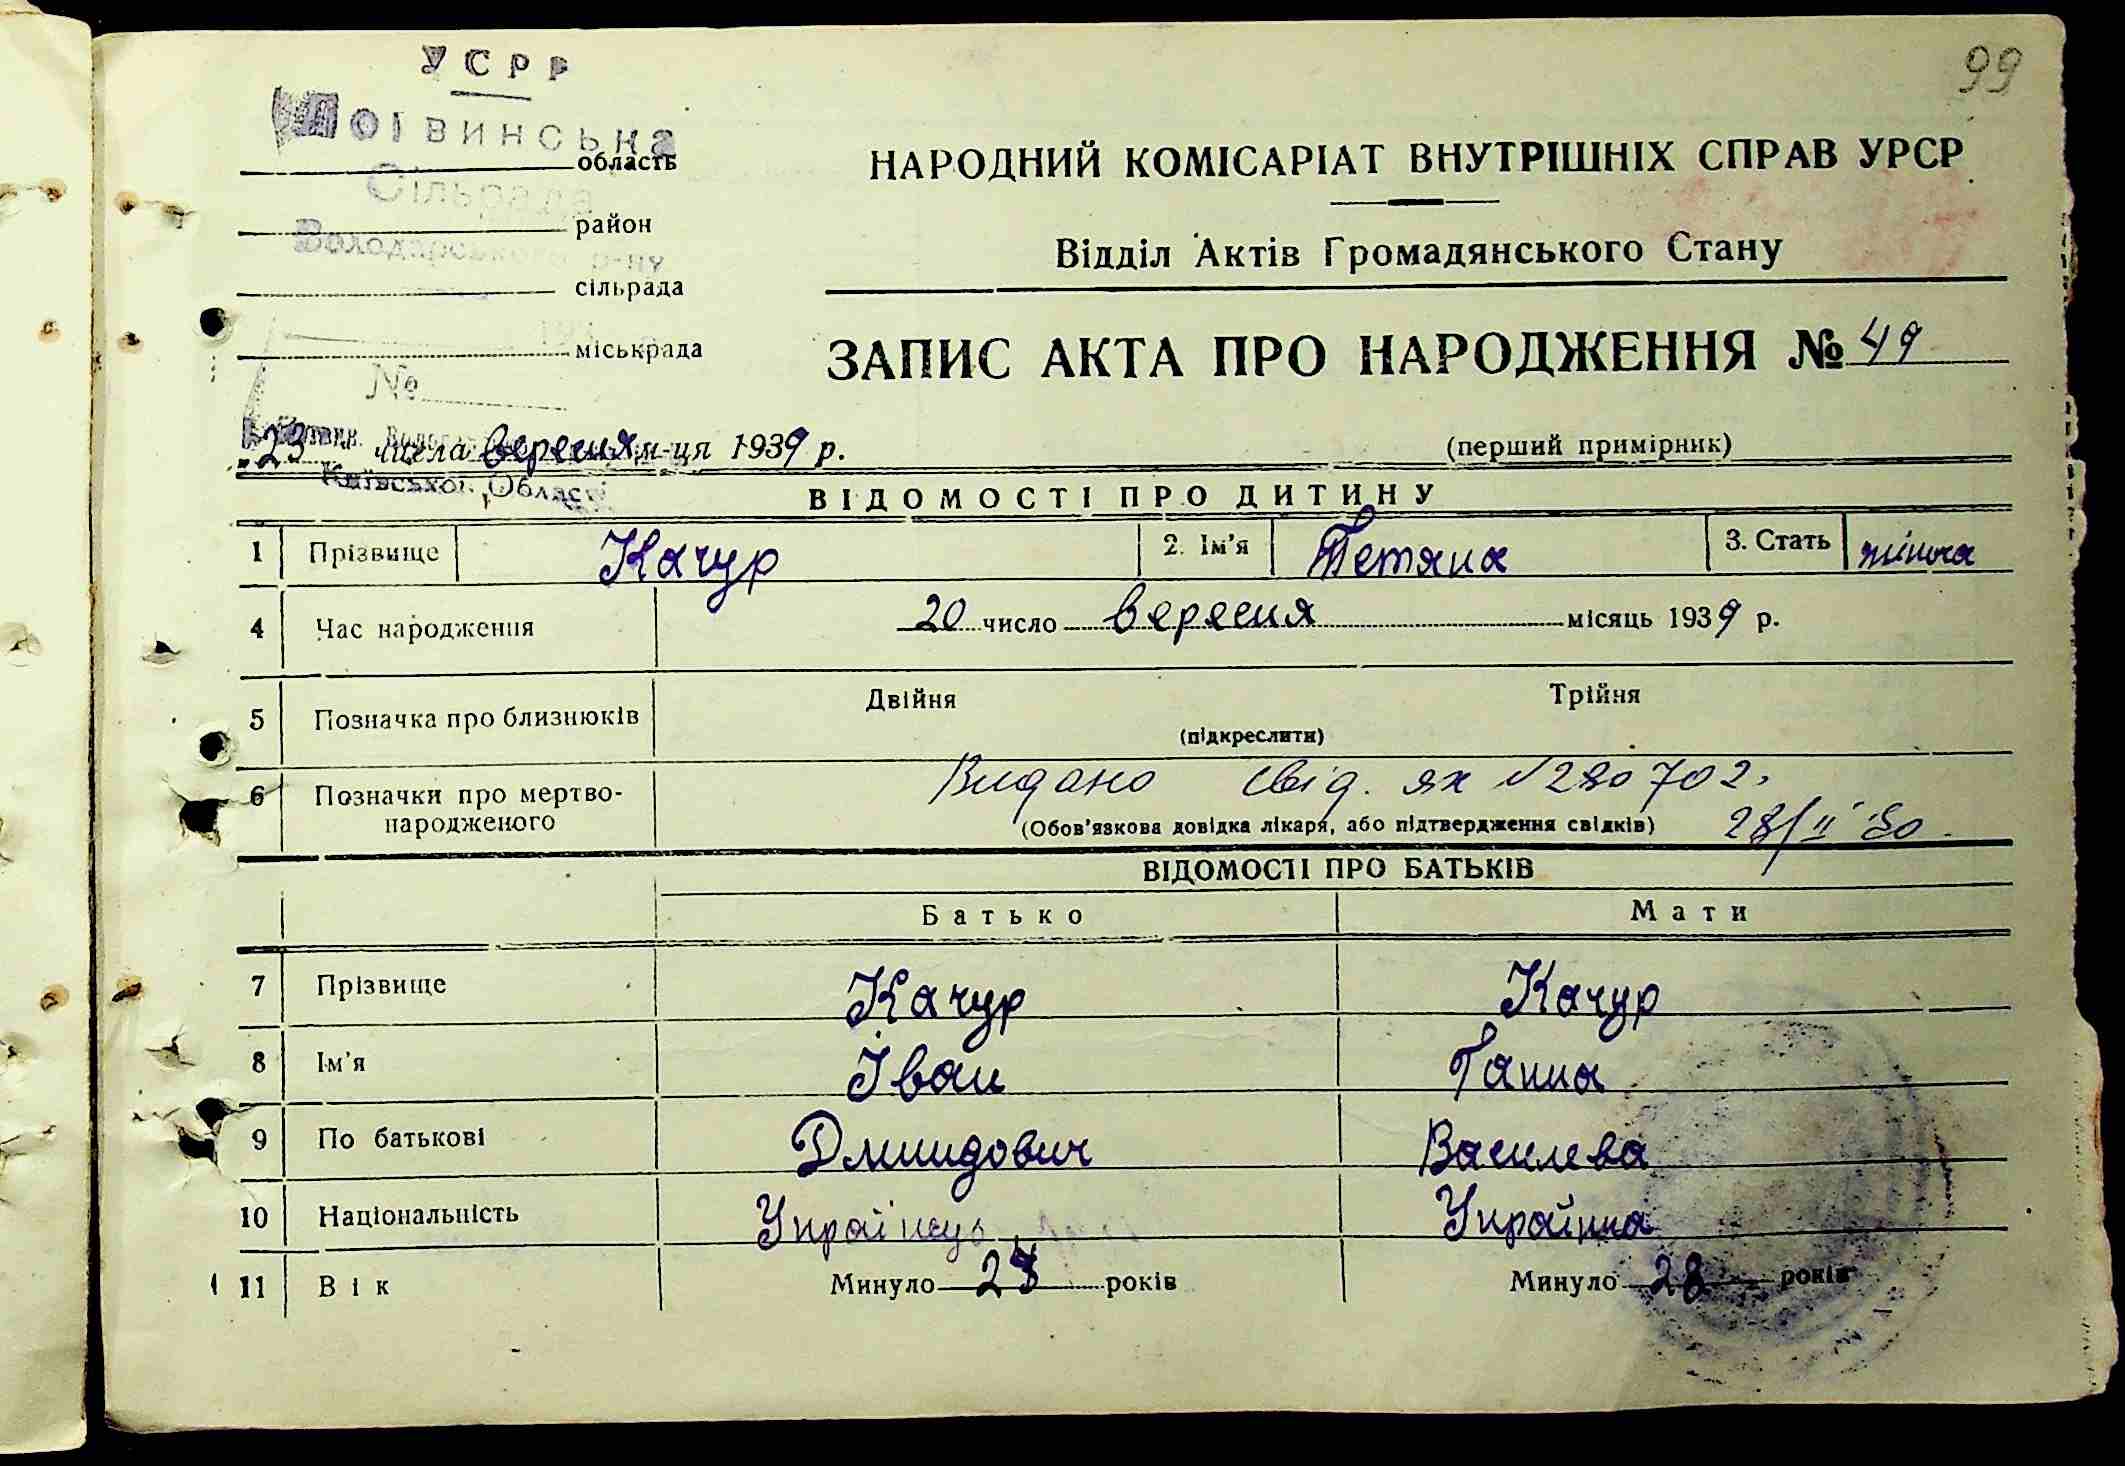 99
УСРР
Логвинська
область
НАРОДНИЙ КОМІСАРІАТ ВНУТРІШНІХ СПРАВ УРСР
Сільрада
район
Володарського р-ну
Відділ Актів Громадянського Стану
сільрада
міськрада
ЗАПИС АКТА ПРО НАРОДЖЕННЯ № 49
№
"23" числа вересня м-ця 1939 р.
(перший примірник)
Київської Області
ВІДОМОСТІ ПРО ДИТИНУ
1 Прізвище Качур 2. Ім'я Тетяна 3. Стать жіноча
4 Час народження 20 число вересня місяць 1939 р.
5 Позначка про близнюків Двійня Трійня
(підкреслити)
6 Позначки про мертвонародженого Видано свід. ЯХ №280702
(Обов'язкова довідка лікаря, або підтвердження свідків) 28/II 80
ВІДОМОСТІ ПРО БАТЬКІВ
Батько Мати
7 Прізвище Качур Качур
8 Ім'я Іван Ганна
9 По батькові Дмидович Василева
10 Національність Українець Українка
11 Вік Минуло років Минуло 28 років